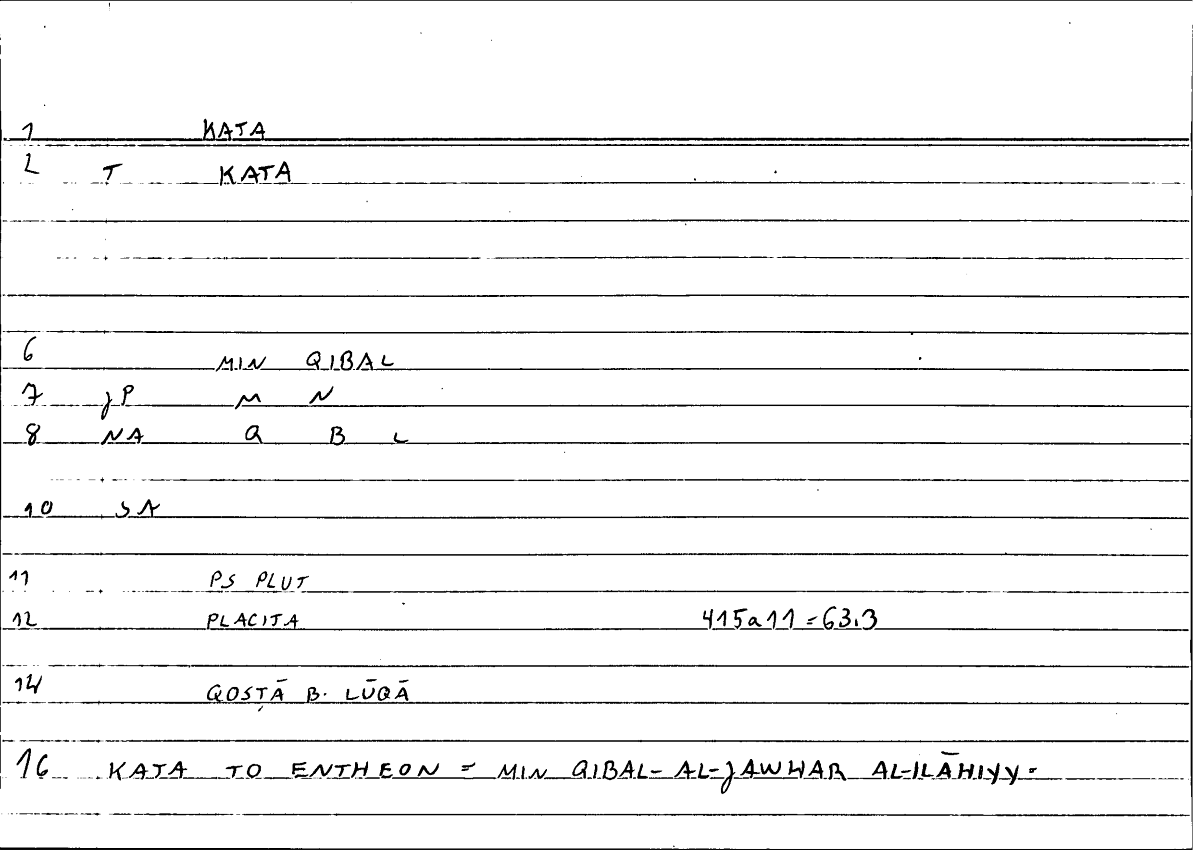 1 KATA
2 T KATA
6 MIN QIBAL
7 JP M N
8 NA Q B L
10 SA
11 PS PLUT
12 PLACITA 415a11=63.3
14 QOSṬĀ B. LŪQĀ
16 KATA TO ENTHEON = MIN QIBAL- AL-JAWHAR AL-ILĀHIYY-